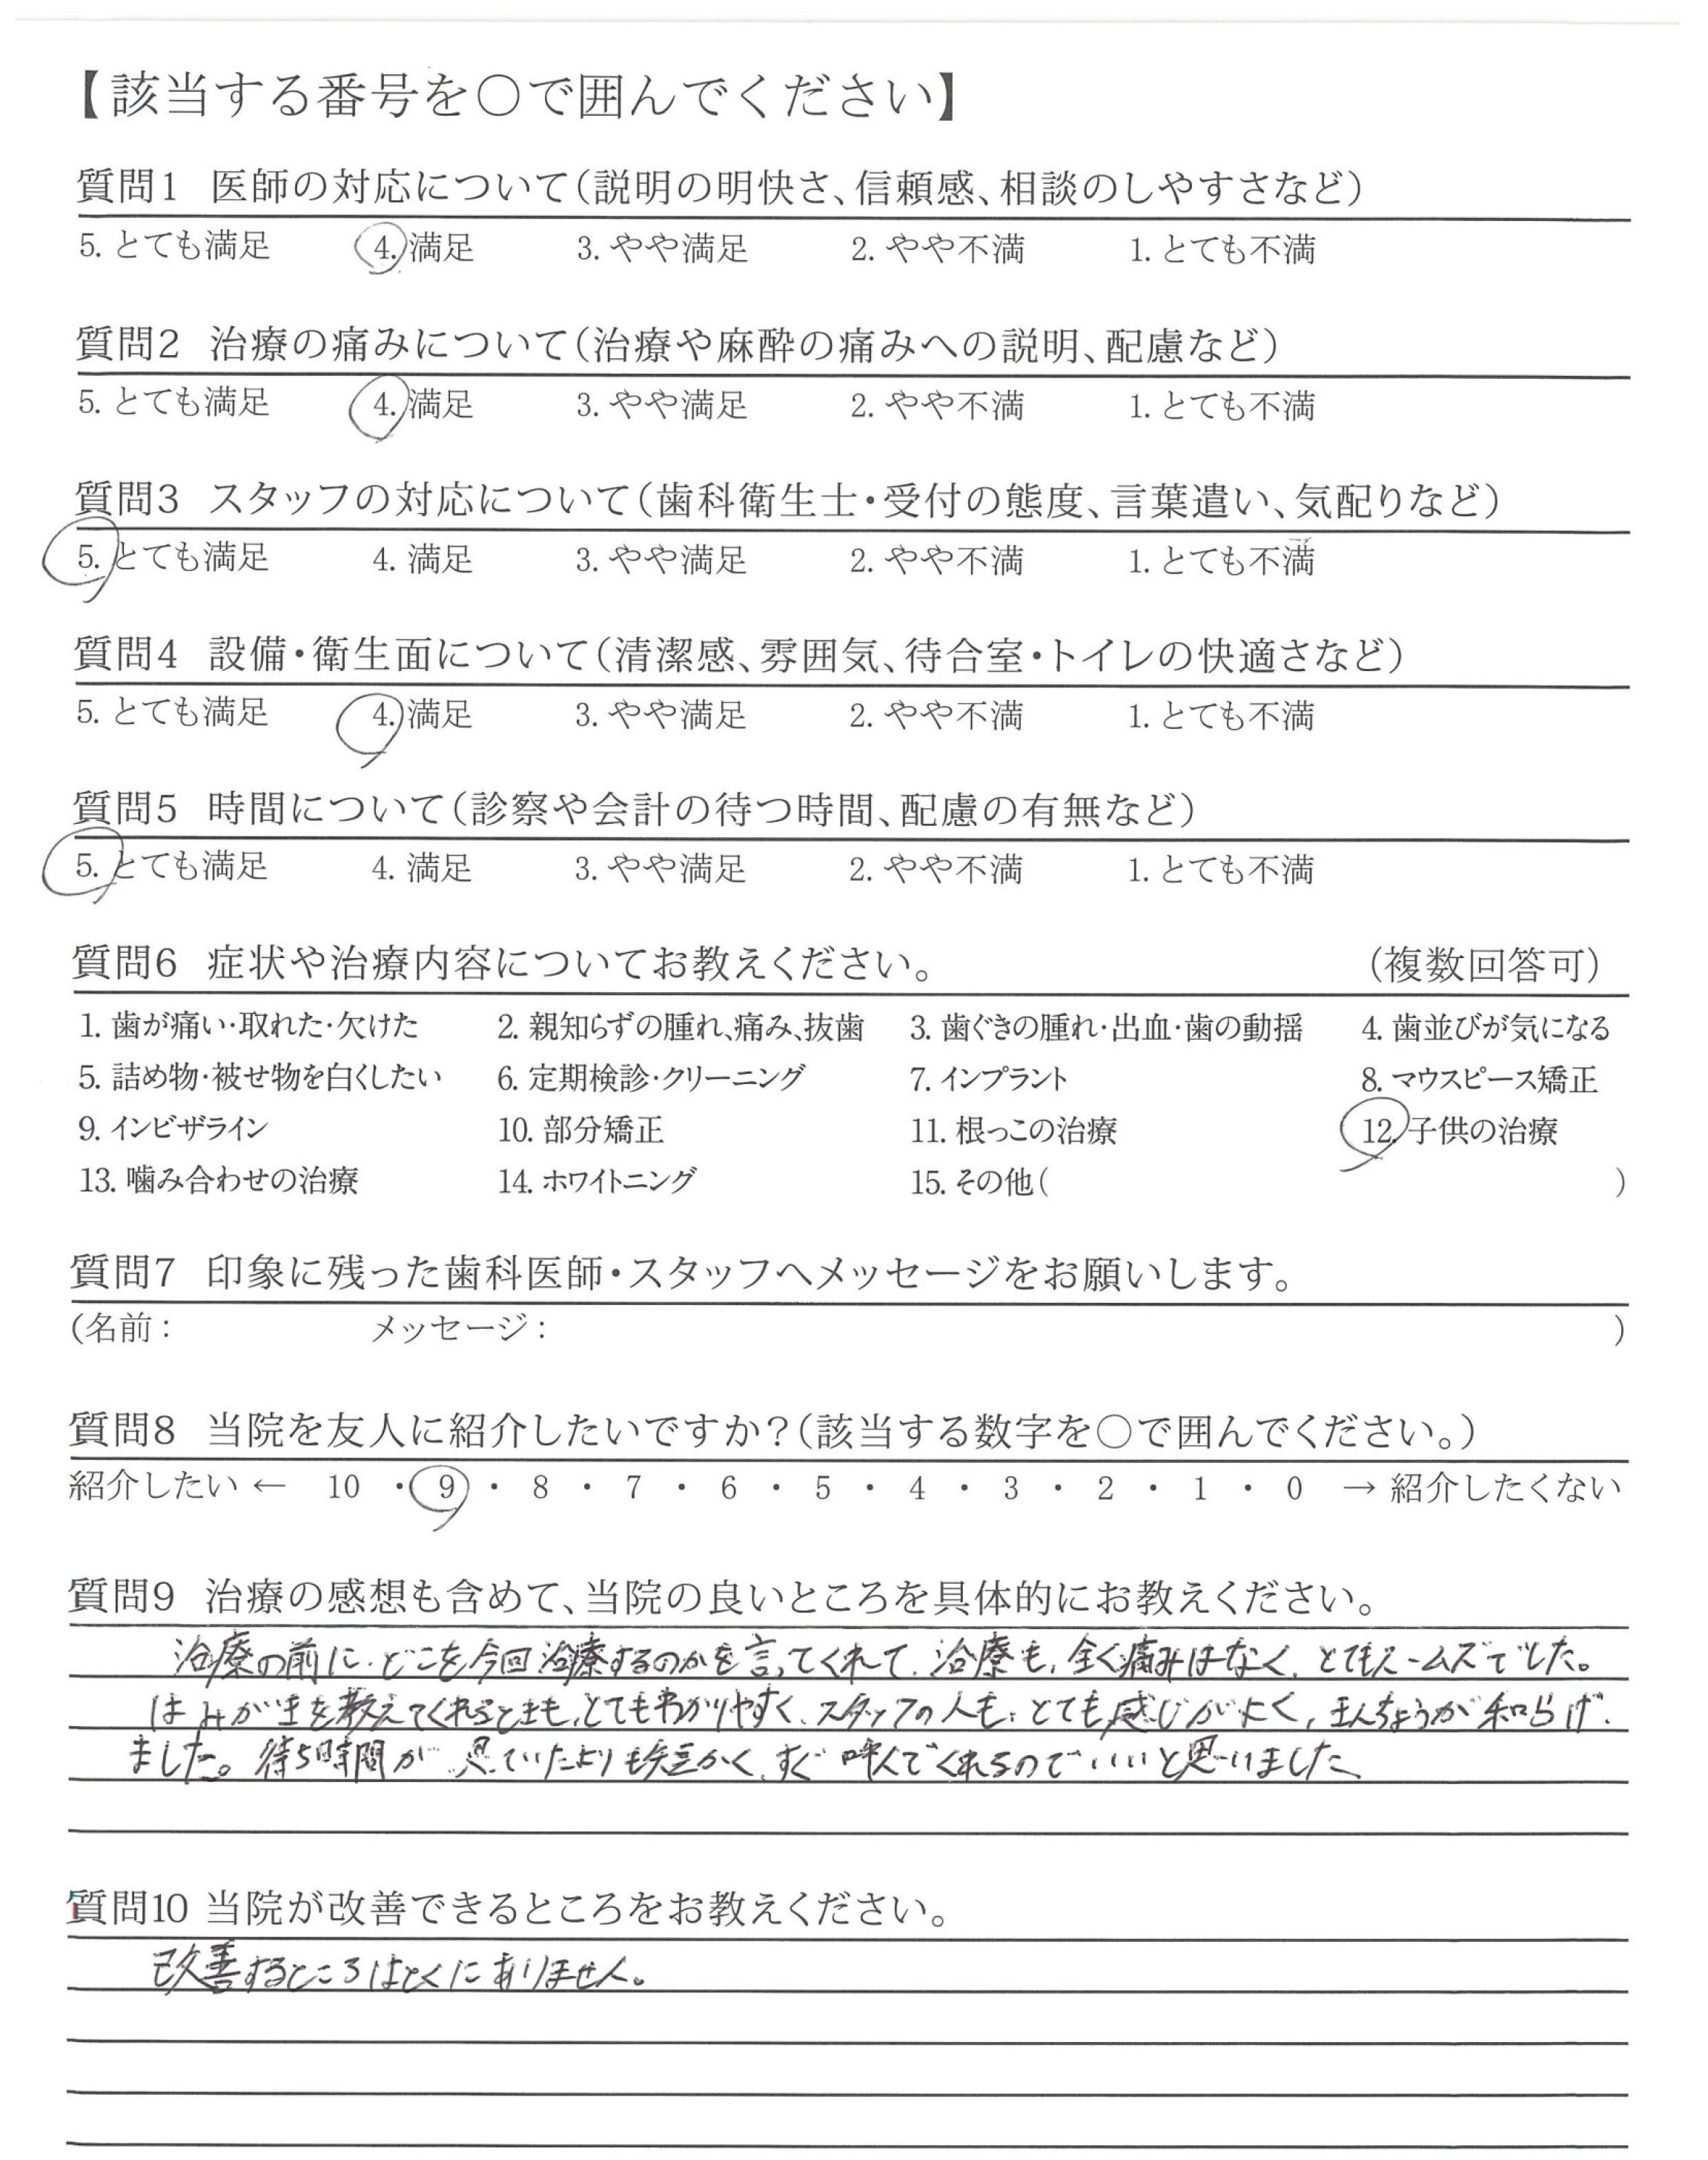 【該当する番号を○で囲んでください】
質問1 医師の対応について(説明の明快さ、信頼感、相談のしやすさなど)
5. とても満足 4. 満足 3. やや満足 2. やや不満 1. とても不満
質問2 治療の痛みについて(治療や麻酔の痛みへの説明、配慮など)
5. とても満足 4. 満足 3. やや満足 2. やや不満 1. とても不満
質問3 スタッフの対応について(歯科衛生士・受付の態度、言葉遣い、気配りなど)
5. とても満足 4. 満足 3. やや満足 2. やや不満 1. とても不満
質問4 設備・衛生面について(清潔感、雰囲気、待合室・トイレの快適さなど)
5. とても満足 4. 満足 3. やや満足 2. やや不満 1. とても不満
質問5 時間について(診察や会計の待つ時間、配慮の有無など)
5. とても満足 4. 満足 3. やや満足 2. やや不満 1. とても不満
質問6 症状や治療内容についてお教えください。 (複数回答可)
1. 歯が痛い・取れた・欠けた 2. 親知らずの腫れ、痛み、抜歯 3. 歯ぐきの腫れ・出血・歯の動揺 4. 歯並びが気になる
5. 詰め物・被せ物を白くしたい 6. 定期検診・クリーニング 7. インプラント 8. マウスピース矯正
9. インビザライン 10. 部分矯正 11. 根っこの治療 12. 子供の治療
13. 噛み合わせの治療 14. ホワイトニング 15. その他( )
質問7 印象に残った歯科医師・スタッフへメッセージをお願いします。
(名前: メッセージ: )
質問8 当院を友人に紹介したいですか?(該当する数字を○で囲んでください。)
紹介したい ← 10 ・ 9 ・ 8 ・ 7 ・ 6 ・ 5 ・ 4 ・ 3 ・ 2 ・ 1 ・ 0 → 紹介したくない
質問9 治療の感想も含めて、当院の良いところを具体的にお教えください。
治療の前に、どこを今回治療するのかを言ってくれて、治療も、全く痛みはなく、とてもスムーズでした。
はみがきを教えてくれるときも、とてもわかりやすく、スタッフの人も、とても感じがよく、きんちょうが和らげ
ました。待ち時間が思っていたよりも短かく、すぐ呼んでくれるのでいいと思いました
質問10 当院が改善できるところをお教えください。
改善するところはとくにありません。